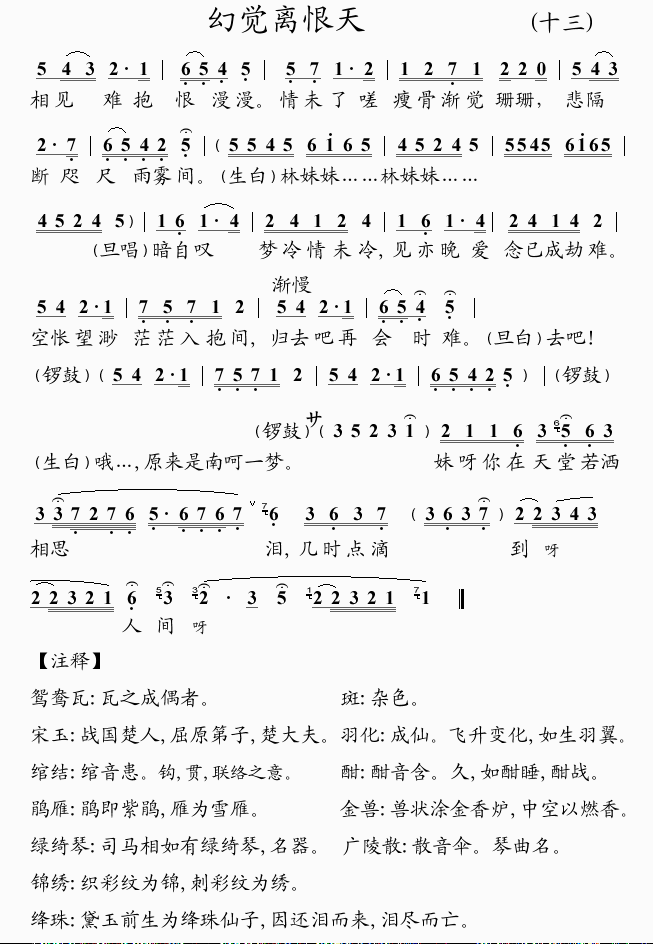 幻觉离恨天 (十三)
5 4 3 2· 1 | 6 5 4 5 | 5 7 1· 2 | 1 2 7 1 2 2 0 | 5 4 3
相见 难抱 恨 漫漫。情未了 嗟 瘦骨渐觉 珊珊, 悲隔
2· 7 | 6 5 4 2 5 | (5 5 4 5 6 i 6 5 | 4 5 2 4 5 5545 6i65 |
断 咫 尺 雨雾间。(生白)林妹妹……林妹妹……
4 5 2 4 5) | 1 6 1· 4 | 2 4 1 2 4 | 1 6 1· 4 | 2 4 1 4 2 |
(旦唱)暗自叹 梦冷情未冷,见亦晚 爱 念已成劫难。
渐慢
5 4 2·1 | 7 5 7 1 2 | 5 4 2·1 | 6 5 4 5 |
空怅望渺 茫茫入抱间, 归去吧再 会 时难。(旦白)去吧!
(锣鼓)(5 4 2·1 | 7 5 7 1 2 | 5 4 2·1 | 6 5 4 2 5 ) | (锣鼓)
(锣鼓)サ( 3 5 2 3 i ) 2 1 1 6 3 6 5 6 3
(生白)哦…,原来是南呵一梦。 妹呀你在天堂若洒
3 3 7 2 7 6 5· 6 7 6 7 ˅ 7 6 3 6 3 7 ( 3 6 3 7 ) 2 2 3 4 3
相思 泪,几时点滴 到 呀
2 2 3 2 1 6 5 3 3 2 · 3 5 1 2 2 3 2 1 7 1 ‖
人 间 呀
【注释】
鸳鸯瓦:瓦之成偶者。 斑:杂色。
宋玉:战国楚人,屈原第子,楚大夫。 羽化:成仙。飞升变化,如生羽翼。
绾结:绾音患。钩,贯,联络之意。 酣:酣音含。久,如酣睡,酣战。
鹃雁:鹃即紫鹃,雁为雪雁。 金兽:兽状涂金香炉,中空以燃香。
绿绮琴:司马相如有绿绮琴,名器。 广陵散:散音伞。琴曲名。
锦绣:织彩纹为锦,刺彩纹为绣。
绛珠:黛玉前生为绛珠仙子,因还泪而来,泪尽而亡。